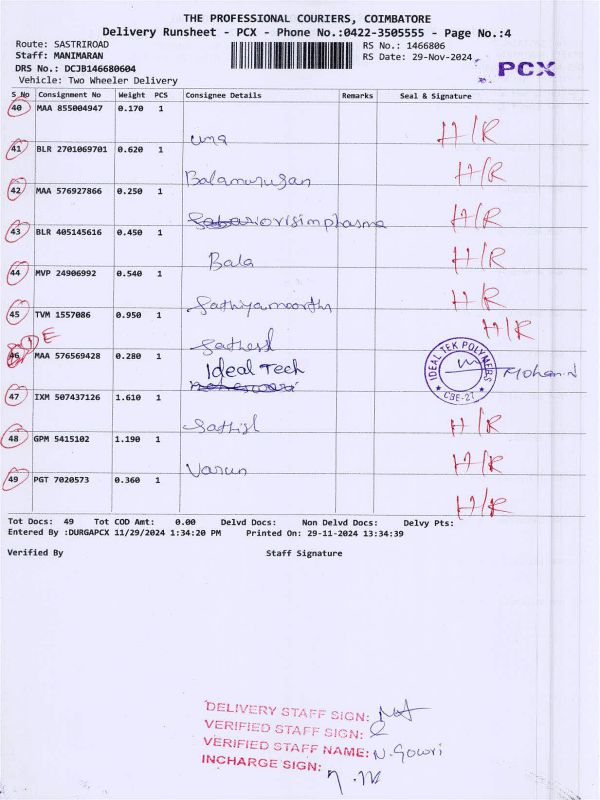 THE PROFESSIONAL COURIERS, COIMBATORE
Delivery Runsheet - PCX - Phone No.:0422-3505555 - Page No.:4
Route: SASTRIROAD RS No.: 1466806
Staff: MANIMARAN RS Date: 29-Nov-2024
DRS No.: DCJB146680604 PCX
Vehicle: Two Wheeler Delivery
S No Consignment No Weight PCS Consignee Details Remarks Seal & Signature
40 MAA 855004947 0.170 1
uma H/R
41 BLR 2701069701 0.620 1
Balamurugan H/R
42 MAA 576927866 0.250 1
H/R
43 BLR 405145616 0.450 1
Bala H/R
44 MVP 24906992 0.540 1
Sathiyamoorthi H/R
45 TVM 1557086 0.950 1
H/R
E
46 MAA 576569428 0.280 1
Ideal Tech
IDEAL TEK POLYMERS
CBE-27
Mohan.N
47 IXM 507437126 1.610 1
Sathish H/R
48 GPM 5415102 1.190 1
Varun H/R
49 PGT 7020573 0.360 1
H/R
Tot Docs: 49 Tot COD Amt: 0.00 Delvd Docs: Non Delvd Docs: Delvy Pts:
Entered By :DURGAPCX 11/29/2024 1:34:20 PM Printed On: 29-11-2024 13:34:39
Verified By Staff Signature
DELIVERY STAFF SIGN:
VERIFIED STAFF SIGN:
VERIFIED STAFF NAME: N.Gowri
INCHARGE SIGN: